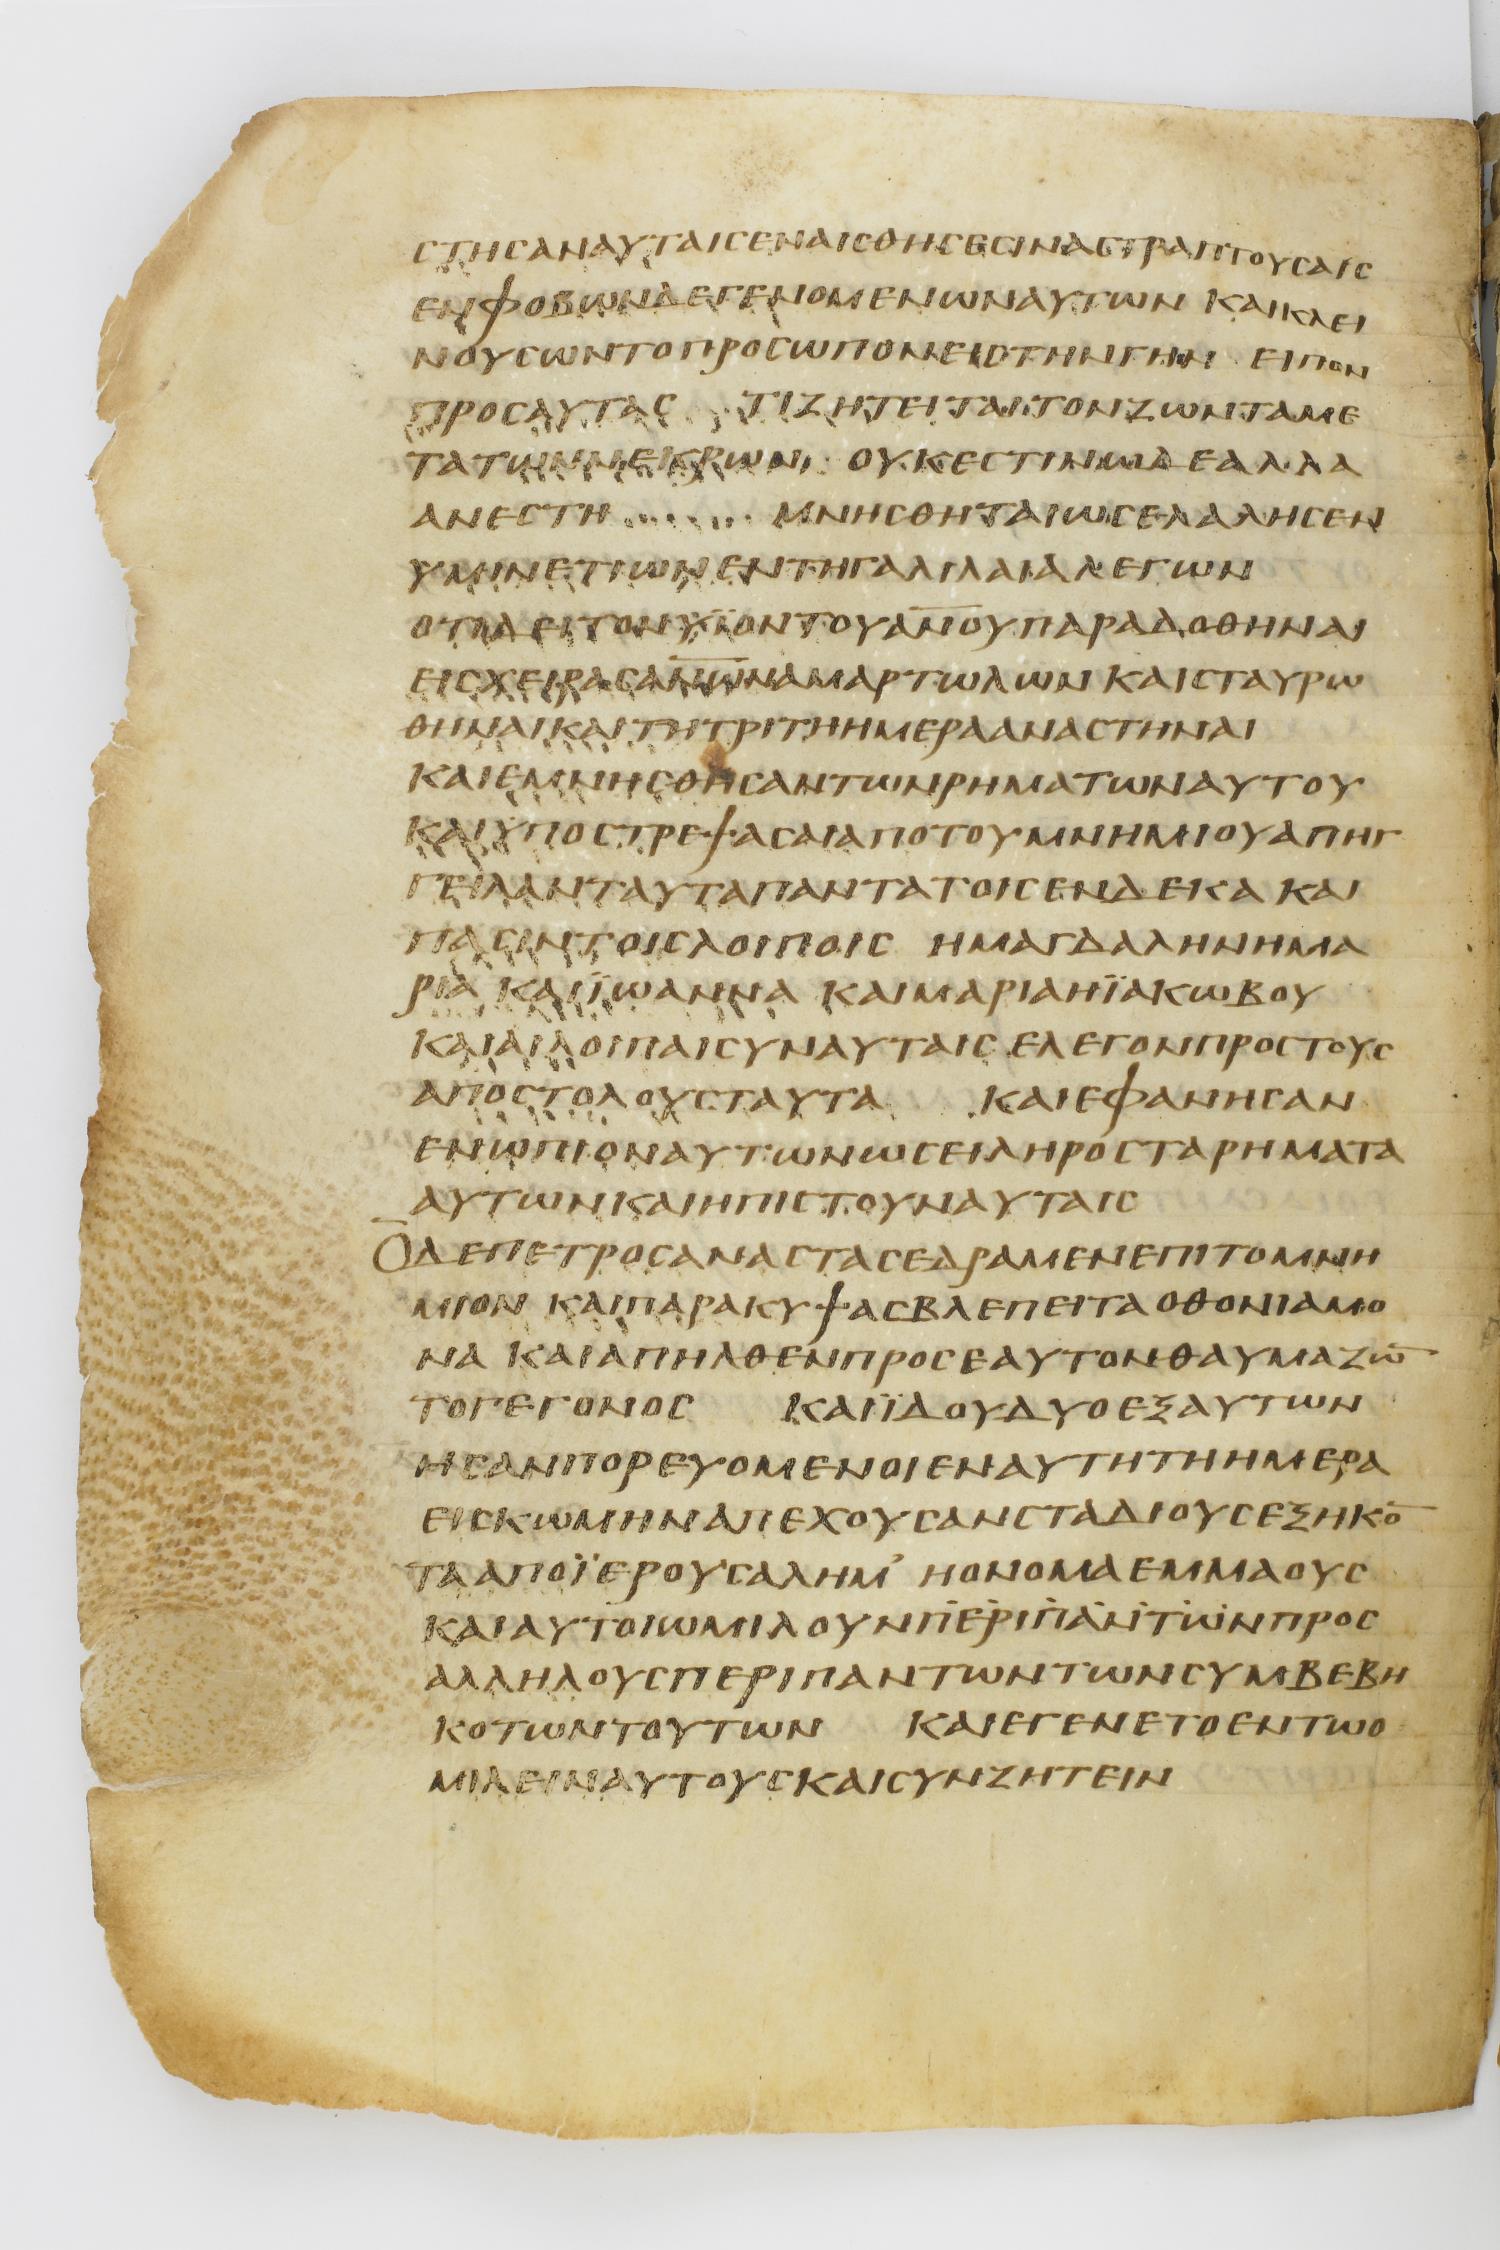 ϲτηϲαναυταιϲεναιϲθηϲεϲιναϲτραπτουϲαιϲ
ενφοβωνδεγενομενωναυτων καικλει
νουϲωντοπροϲωπονειϲτηνγην ειπον
προϲαυταϲ τιζητειταιτονζωνταμε
τατωννεκρων ουκεϲτινωδεαλλα
ανεϲτη...... μνηϲθηταιωϲελαληϲεν
υμινετιωνεντηγαλιλαιαλεγων
οτιδειτονϋιοντουα̅ν̅ο̅υ̅παραδοθηναι
ειϲχειραϲα̅ν̅ω̅ν̅αμαρτωλων καιϲταυρω
θηναικαιτητριτηημερααναϲτηναι
καιεμνηϲθηϲαντωνρηματωναυτου
καιϋποϲτρεψαϲαιαποτουμνημιουαπηγ
γειλανταυταπαντατοιϲενδεκα και
παϲιντοιϲλοιποιϲ ημαγδαληνημα
ρια καιϊωαννα καιμαριαηϊακωβου
καιαιλοιπαιϲυναυταιϲ ελεγονπροϲτουϲ
αποϲτολουϲταυτα καιεφανηϲαν
ενωπιοναυτωνωϲειληροϲταρηματα
αυτωνκαιηπιϲτουναυταιϲ
Οδεπετροϲαναϲταϲεδραμενεπιτομνη
μιον καιπαρακυψαϲβλεπειταοθονιαμο
να καιαπηλθενπροϲεαυτονθαυμαζω̅
τογεγονοϲ καιϊδουδυοεξαυτων
ηϲανπορευομενοιεναυτητηημερα
ειϲκωμηναπεχουϲανϲταδιουϲεξηκο̅
τααποϊερουϲαλημ᾽ ηονομαεμμαουϲ
καιαυτοιωμιλουνπ̇ε̇ρ̇ι̇π̇α̇ν̇τ̇ω̇ν̇προϲ
αλληλουϲπεριπαντωντωνϲυμβεβη
κοτωντουτων καιεγενετοεντωο
μιλειναυτουϲκαιϲυνζητειν